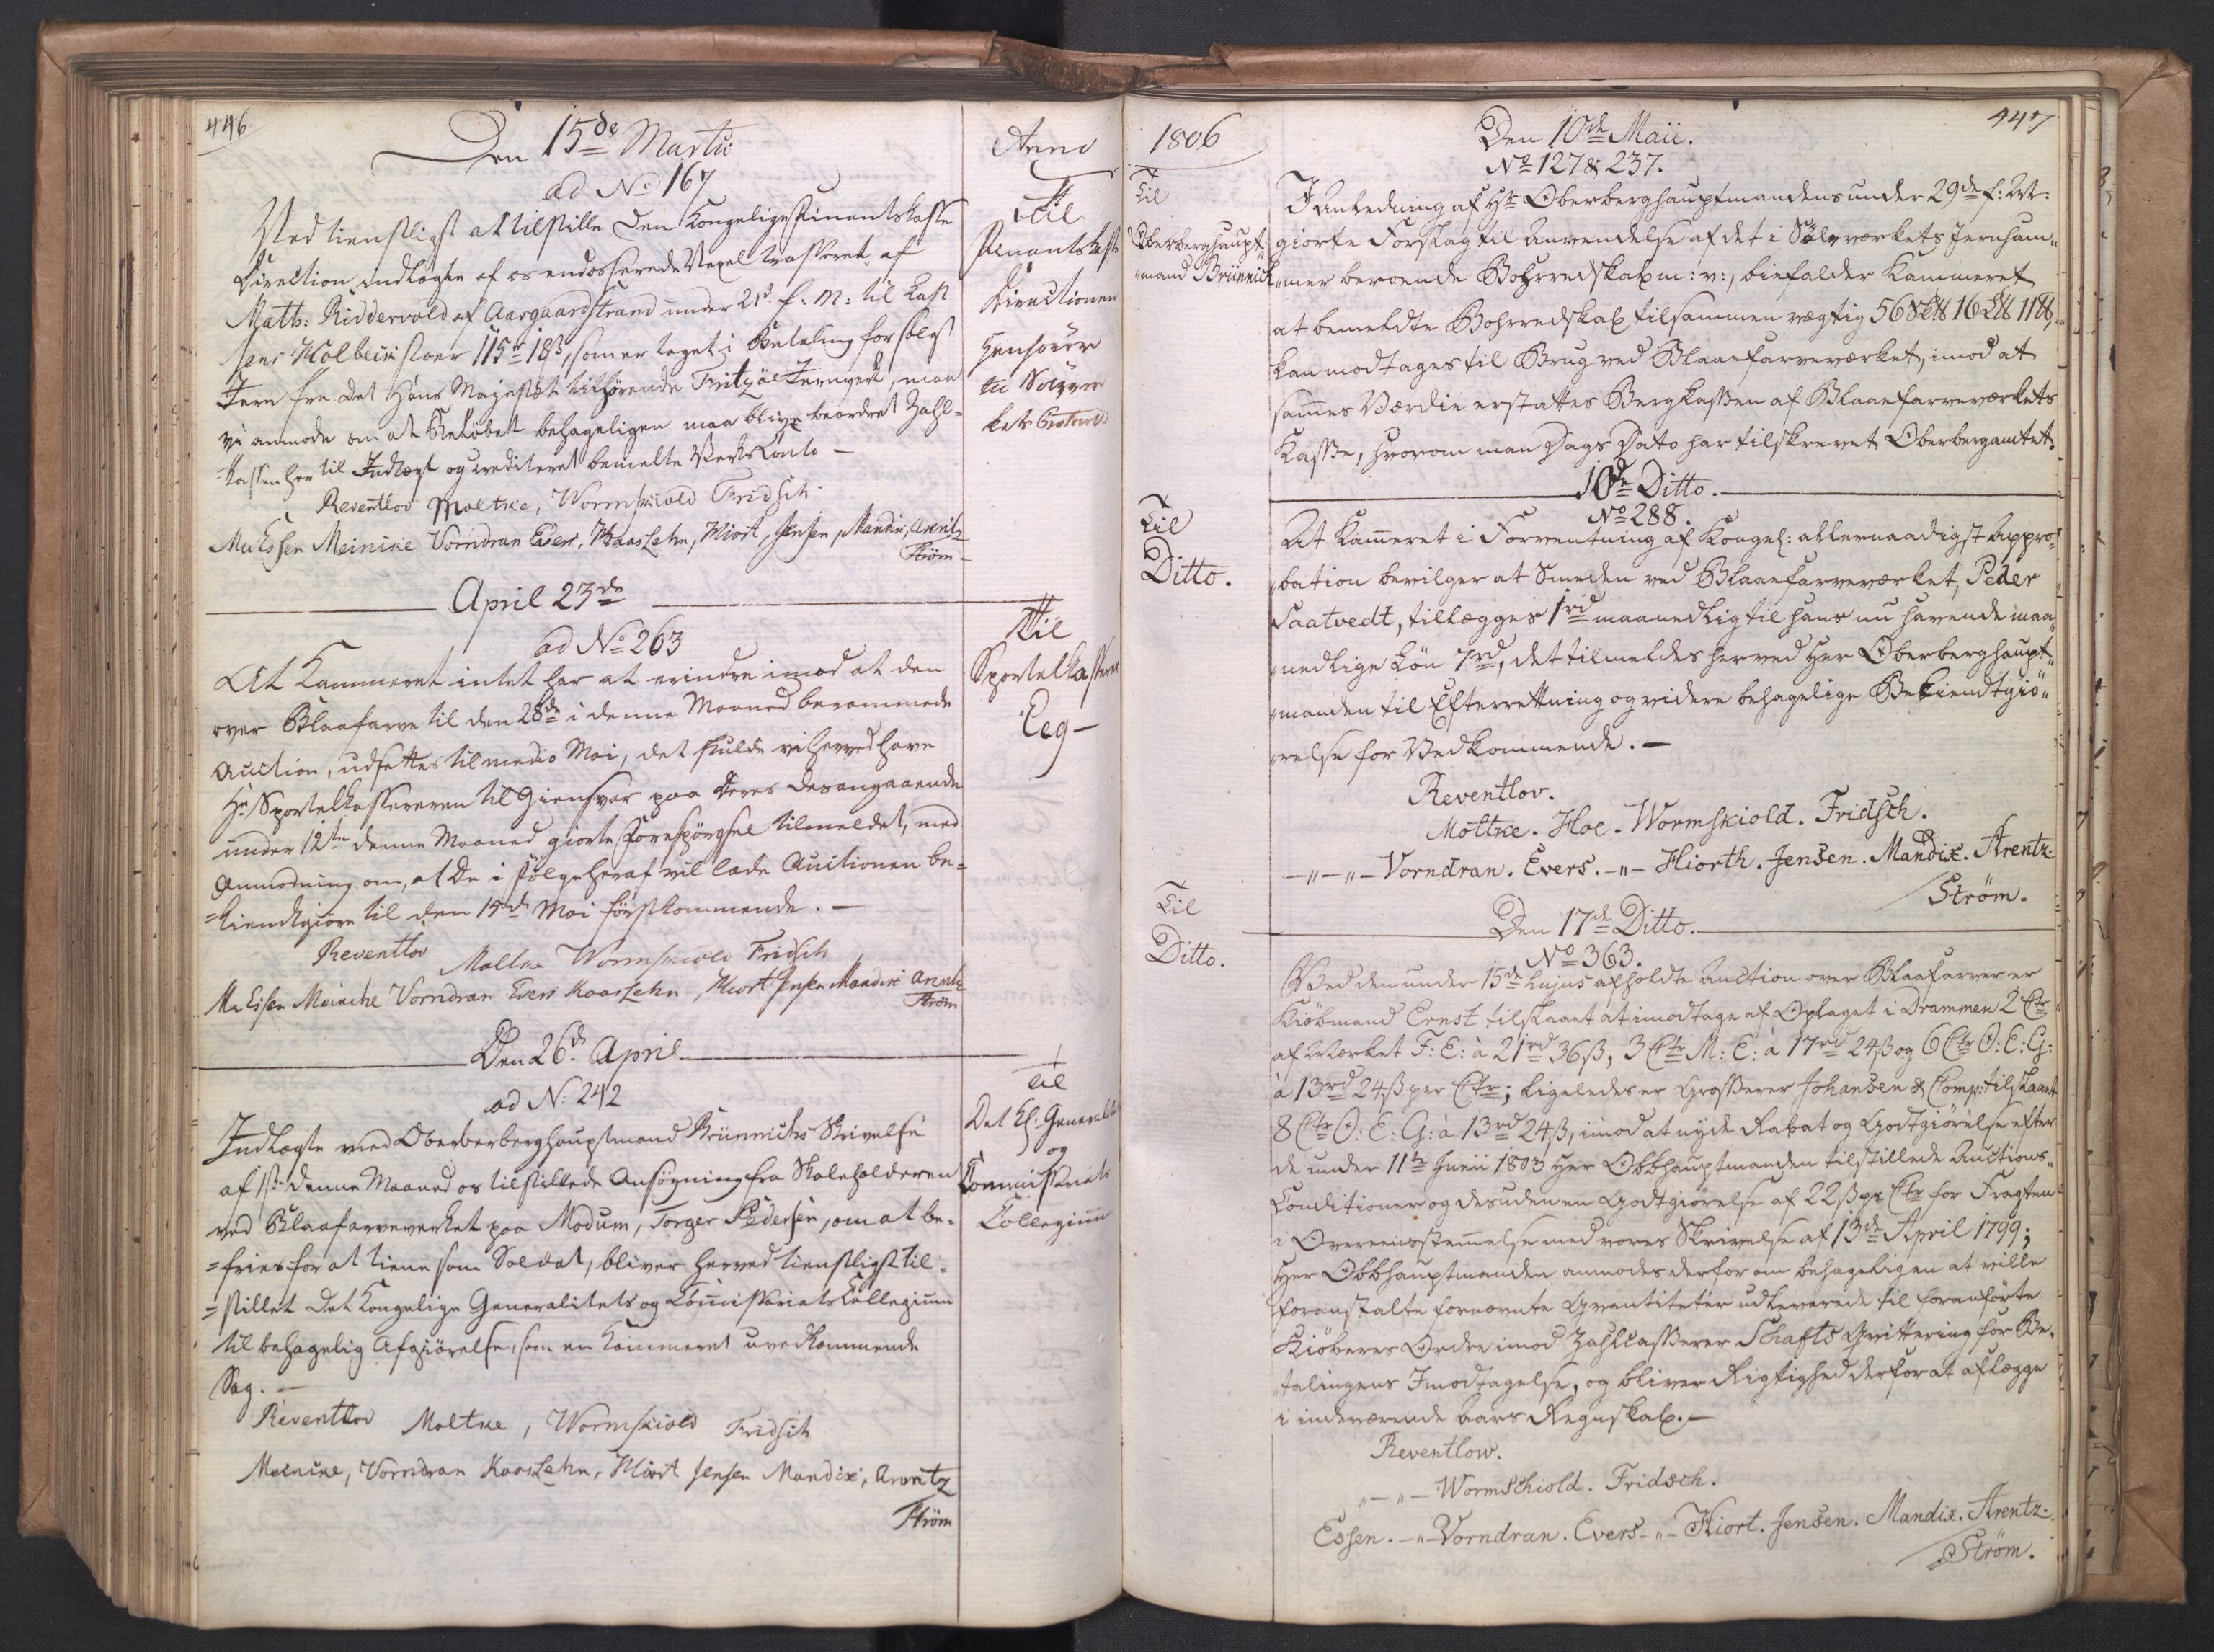 446
Den 15de Martii
Anno
ad No 167
Til
Finantskasse
Directionen
henhører
til Sølvver
kets Protocoll
Ved tienstligst at tilstille Den Kongelige Finantskasse
Direction indlagte af os endosserede Vexel trasseret af
Math: Riddervold af Aasgaardstrand under 21de f: M: til Last
Jens Holbein stoer 115rd 18s, som er taget i Betaling for solgt
Jern fra Det Hans Majestæt tilhørende Fritzöe Jernverk, maa
vi anmode om at Beløbet behageligen maa blive beordret Zahl-
kassen her til Indtægt og crediteret bemelte Verks Conto —
Reventlov Moltke, Wormskiold Fridsch
Essen Meinike Vorndran Evers, Kaas Lehn, Hiort, Jensen, Mandix, Arentz
Strøm
April 23de
ad No 263
Til
Sportelkasserer
Eeg —
At Kammeret intet har at erindre imod at den
over Blaafarve til den 28de i denne Maaned berammede
Auction, udsættes til medio Mai, det skulde vi herved have
Hr Sportelkassereren til Giensvar paa Deres desangaaende
under 12te denne Maaned giorte Forespørgsel tilmeldet, med
Anmodning om, at De i Følge heraf vil lade Auctionen be-
=kiendtgiøre til den 15de Mai førstkommende. —
Reventlov Moltke Wormskiold Fridsch
Essen Meinike Vorndran Evers Kaas Lehn, Hiort Jensen Mandix Arentz
Strøm
Den 26de April
ad N: 242
Til
Det Kl: Generalitets
og
Commissariats
Collegium
Indlagte med Oberberghauptmand Brünnichs Skrivelse
af 1ste denne Maaned os tilstillede Ansøgning fra Skoleholderen
ved Blaafarveverket paa Modum, Torger Pedersen, om at be-
=fries for at tiene som Soldat, bliver herved tienstligst til-
=stillet Det Kongelige Generalitets og Commissariats Collegium
til behagelig Afgiørelse, som en Kammeret uvedkommende
Sag. —
Reventlov Moltke, Wormskiold Fridsch
Meinike, Vorndran Kaas Lehn, Hiort Jensen Mandix, Arentz
Strøm
1806
447
Den 10de Maii.
No 127 & 237.
Til
Oberberghaupt-
"mand Brünnich
I Anledning af Hr Oberberghauptmandens under 29de f: M:
giorte Forslag til Anvendelse af det i Sølvværkets Jernham„
„mer beroende Bohrredskab m: v:, biefalder Kammeret
at bemeldte Bohrredskab tilsammen vægtig 56 S℔ 16 L℔ 11℔,
kan modtages til Brug ved Blaaefarveværket, imod at
sammes Værdie erstattes Bergkassen af Blaaefarveværkets
Kasse, hvorom man Dags Dato har tilskrevet Oberbergamtet.
10de Ditto.
No 288.
Til
Ditto.
At Kammeret i Forventning af Kongel: allernaadigst Appro„
„bation bevilger at Smeden ved Blaaefarveværket, Peder
Saatvedt, tillægges 1rd maanedlig til hans nu havende maa„
„nedlige Løn 7rd, det tilmeldes herved Her Oberberghaupt„
„manden til Efterretning og videre behagelige Bekiendtgiö„
„relse for Vedkommende. —
Reventlov.
Moltke. Hoe. Wormskiold. Fridsch.
—„—„— Vorndran. Evers. —„— Hiorth. Jensen. Mandix. Arentz.
Strøm.
Den 17de Ditto.
No 363.
Til
Ditto.
Ved den under 15de hujus afholdte Auction over Blaafarver er
Kiöbmand Ernst tilslaaet at imodtage af Oplaget i Drammen 2 Ctr
af Mærket F: E: à 21rd 36ß, 3 Ctr M: E: à 17rd 24ß og 6 Ctr O: E: G:
à 13rd 24ß per Ctr; ligeledes er Grosserer Johansen & Comp: tilslaaet
8 Ctr O: E: G: à 13rd 24ß, imod at nyde Rabat og Godtgiörelse efter
de under 11te Junii 1803 Her Obbhauptmanden tilstillede Auctions„
Conditioner og desuden en Godtgiörelse af 22ß pr Ctr for Fragten
i Overeensstemmelse med vores Skrivelse af 13de April 1799;
Her Obbhauptmanden anmodes derfor om behageligen at ville
foranstalte fornævnte Qvantiteter udleverede til foranförte
Kiöberes Ordre imod Zahlkasserer Schafts Qvittering for Be„
„talingens Imodtagelse, og bliver Rigtighed derfor at aflægge
i indeværende Aars Regnskab. —
Reventlow.
„—„— Wormschiold. Fridsch.
Essen. —„— Vorndran. Evers —„— Hiort. Jensen. Mandix. Arentz.
Strøm.